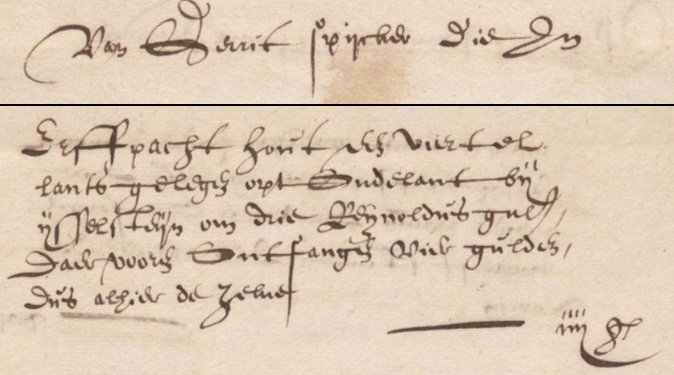 Van Gerrit spijcker die In
Erffpacht hout een viertel
lants gelegen opt Oudelant bij
ijsselsteijn om drie Reijnoldus gul
Daer vooren Ontfangen vier gulden,
dus alhier de zelve
iiij g